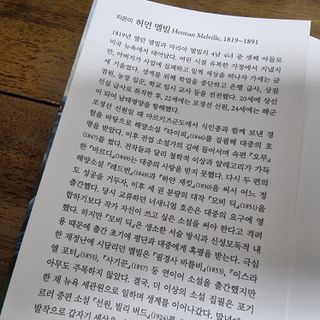 지은이 허먼 멜빌 Herman Melville, 1819~1891
1819년 앨런 멜빌과 마리아 멜빌의 4남 4녀 중 셋째 아들로
미국 뉴욕에서 태어났다. 어린 시절 유복한 가정에서 지냈지
만, 아버지가 사업에 실패하고 일찍 세상을 떠나자 가세는 급
격히 기울었다. 생계를 위해 학업을 중단하고 은행 급사, 상점
점원, 농장 일꾼, 학교 임시 교사 등을 전전했다. 20세에 상선
선실 급사로 취직한 후, 22세에는 포경선 선원, 24세에는 해군
이 되어 남태평양을 항해했다.
포경선 선원일 때 마르키즈군도에서 식인종과 함께 보낸 경
험을 바탕으로 해양소설 『타이피』(1846)를 집필해 대중의 호
평을 받았다. 이후 전업 소설가의 길에 들어서며 속편 『오무』
(1847)를 썼다. 원작들과 달리 철학과 이상과 알레고리가 가득
한 『마르디』(1849)는 대중의 사랑을 받지 못했다. 다시 두 편의
해양소설 『레드번』(1849)과 『하얀 재킷』(1850)을 써서 어느 정
도 성공을 거두자, 이후 세 권 분량의 대작 『모비 딕』(1851)을
출간했다. 당시 교류하던 너새니얼 호손은 대중의 요구에 영
합하기보다 작가 자신이 쓰고 싶은 소설을 써야 한다고 격려
했다. 하지만 『모비 딕』은 생소한 서술 방식과 신성모독적 내
용 때문에 출간 초기에 평단과 대중에게 혹평을 받는다. 극심
한 재정난에 시달리던 멜빌은 『필경사 바틀비』(1853), 『이스라
엘 포터』(1855), 『사기꾼』(1857) 등 연이어 소설을 출간했지만
아무도 주목하지 않았다. 결국, 더 이상의 소설 집필은 포기
한 채 뉴욕 세관원으로 일하며 생계를 이어나갔다. 말년에
르러 중편 소설 『선원, 빌리 버드』(1924)를
발작으로 갑자기 세상을